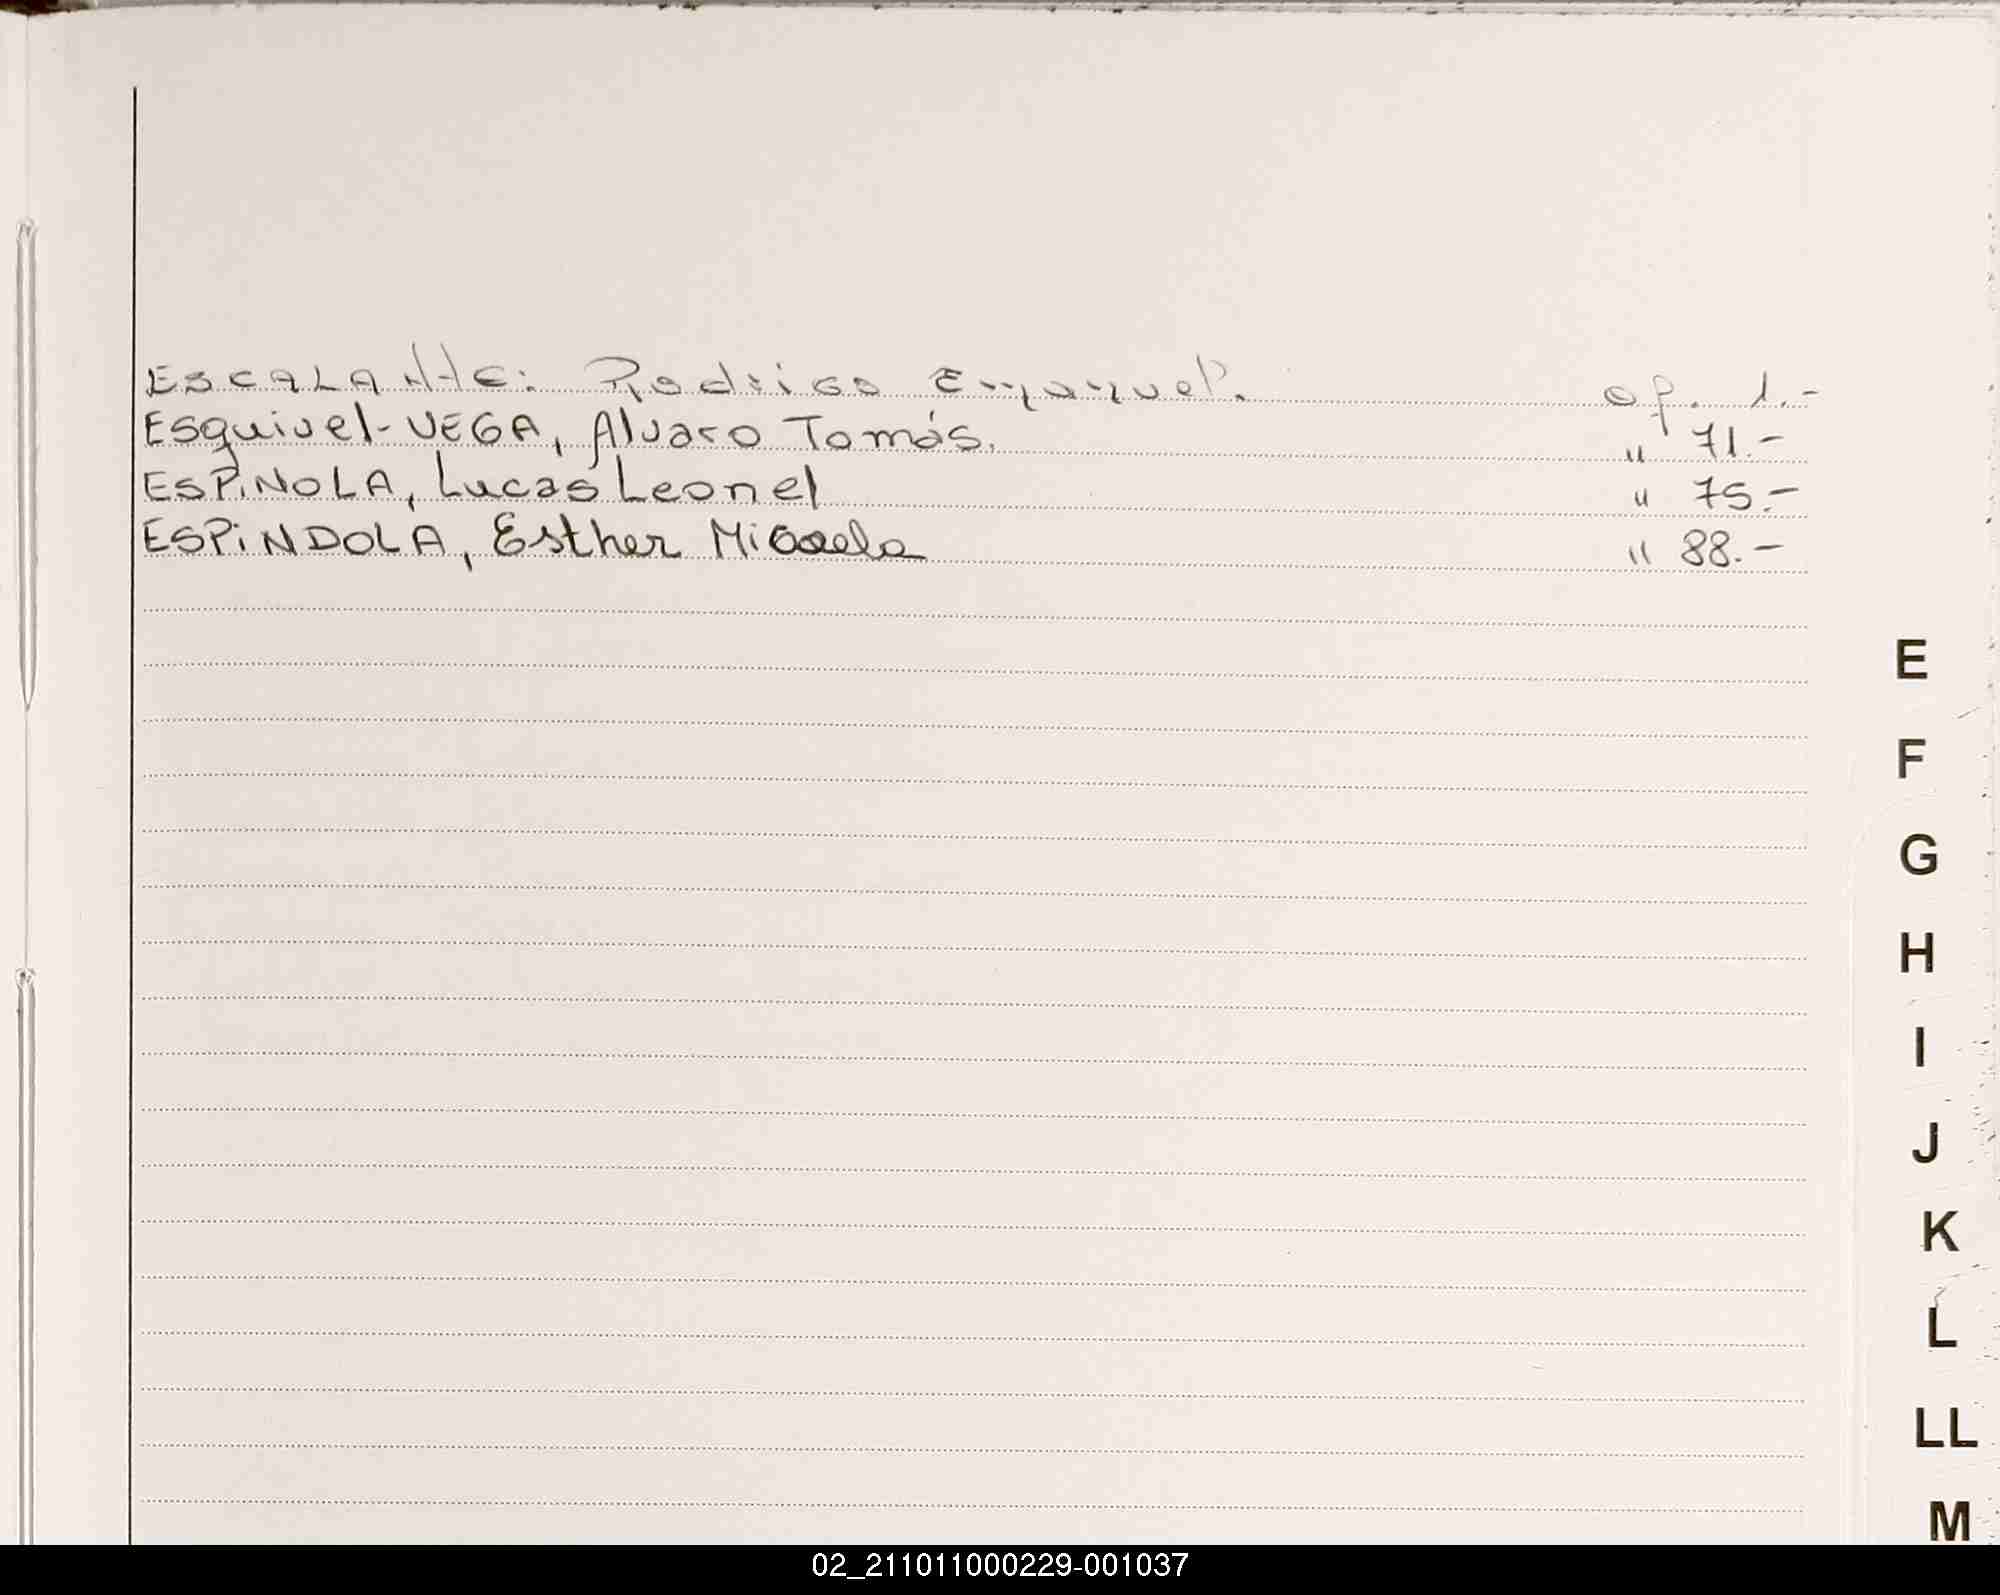 ESCALANte: Rodrigo Emanuel. op. 1.-
ESquivel-VEGA, Alvaro Tomás. " 71.-
ESPiNOLA, Lucas Leonel " 75.-
ESPiNDOLA, Esther Micaela " 88.-
E
F
G
H
I
J
K
L
LL
M
02_211011000229-001037